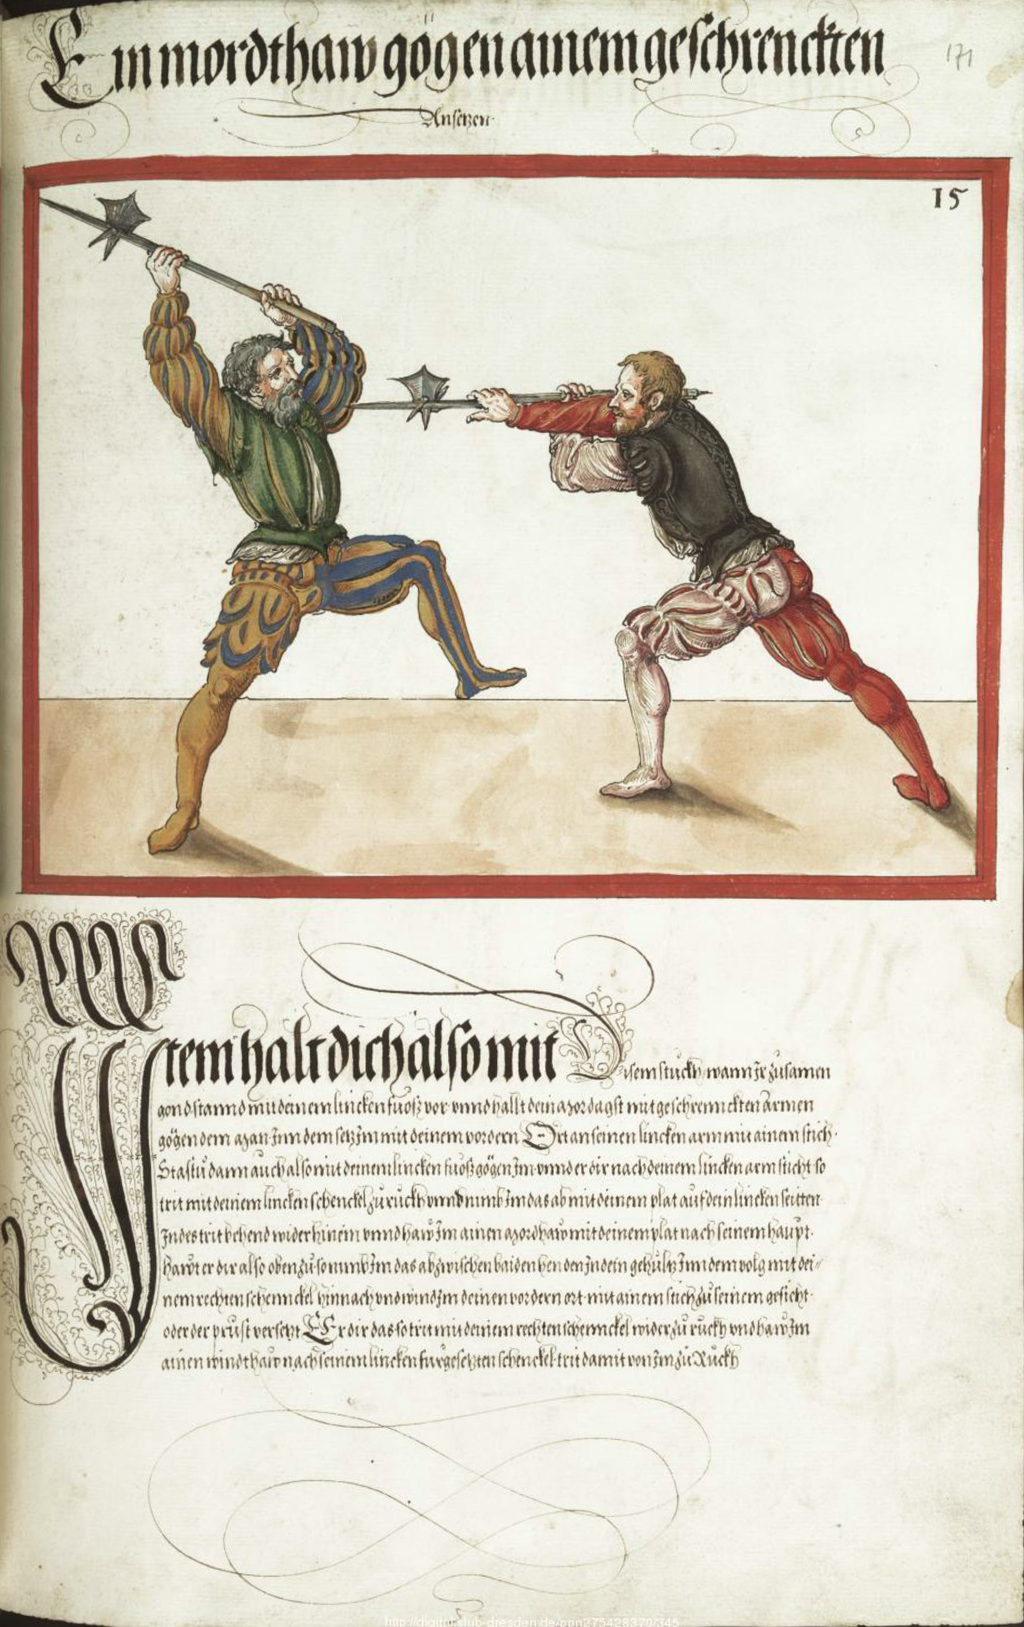 Ein mordthaw gögen ainem geschrenckten
171
Ansetzen
15
Item halt dich also mit Disem stuckh wann Ir zusamen
gond stannd mit deinem lincken fuosz vor vnnd hallt dein mordagst mit geschrennckten Armen
gögen dem man Inn dem setz Im mit deinem vordern Ort an seinen lincken arm mit ainem stich
Stastu dann auch also mit deinem lincken fuosz gögen Im vnnd er dir nach deinem lincken arm sticht so
trit mit deinem lincken schenckel zu ruckh vnnd nimb Im das ab mit deinem plat auf dein lincken seitten
Indes trit behend wider hinein vnnd haw Im ainen mordhaw mit deinem plat nach seinem haupt
hawt er dir also oben zu so nimb Im das ab zwischen baiden henden In dein gehültz Inn dem volg mit dei-
nem rechten schennckel hinnach vnd wind Im deinen vordern ort mit ainem stich zu seinem gesicht
oder der prust versetzt Er dir das so trit mit deinem rechten schennckel wider zu ruckh vnd haw Im
ainen windthaw nach seinem lincken furgesetzten schenckel trit damit von Im zu Ruckh